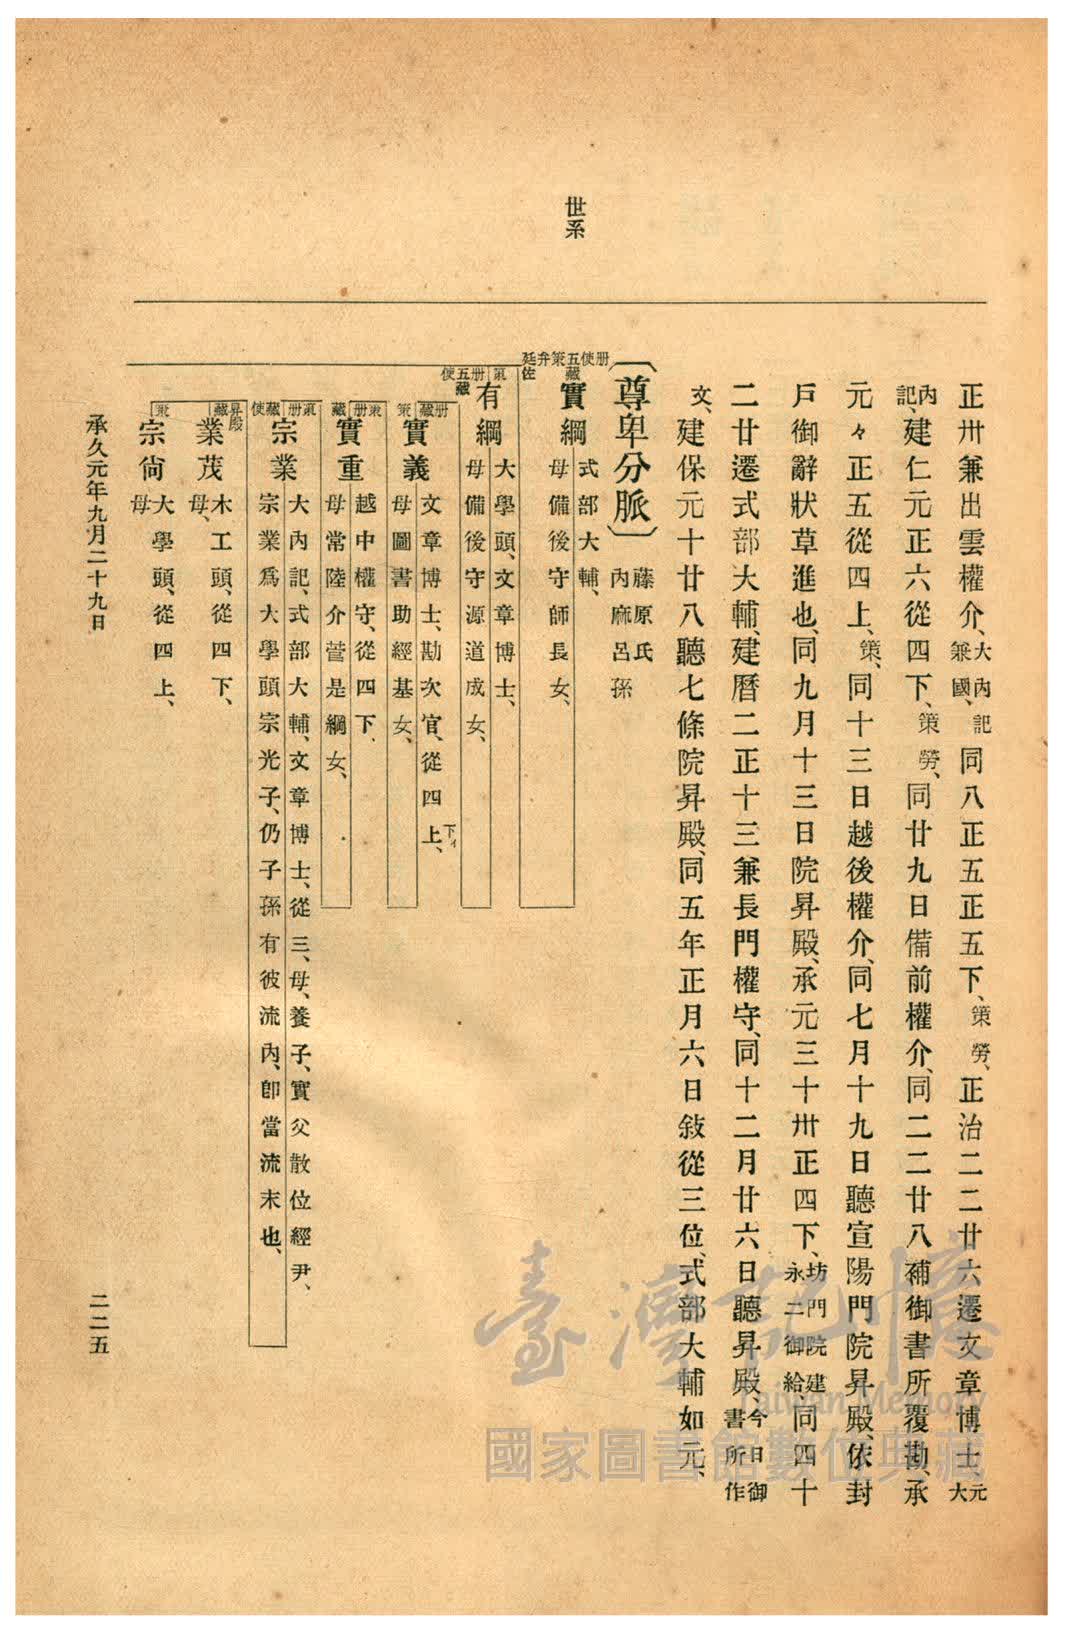 世系
正卅兼出雲權介、大內記兼國、同八正五正五下、策勞、正治二二廿六遷文章博士、元大
內記、建仁元正六從四下、策勞、同廿九日備前權介、同二二廿八補御書所覆勘、承
元々正五從四上、策、同十三日越後權介、同七月十九日聽宣陽門院昇殿、依封
戶御辭狀草進也、同九月十三日院昇殿、承元三十卅正四下、坊門院建永二御給、同四十
二廿遷式部大輔、建曆二正十三兼長門權守、同十二月廿六日聽昇殿、今日御書所作
文、建保元十廿八聽七條院昇殿、同五年正月六日敍從三位、式部大輔如元、
〔尊卑分脈〕藤原氏內麻呂孫
册使五策弁廷
藏佐
實綱
式部大輔、
母備後守師長女、
策册五使
藏
有綱
大學頭、文章博士、
母備後守源道成女、
册藏策
實義
文章博士、勘次官、從四上、下イ
母圖書助經基女、
策册藏
實重
越中權守、從四下、
母常陸介菅是綱女、
策册藏使
宗業
大內記、式部大輔、文章博士、從三、母、養子、實父散位經尹、
宗業爲大學頭宗光子、仍子孫有彼流內、卽當流末也、
昇殿藏
業茂
木工頭、從四下、
母、
策
宗尙
大學頭、從四上、
母
承久元年九月二十九日
二二五
臺灣記憶
Taiwan Memory
國家圖書館數位典藏